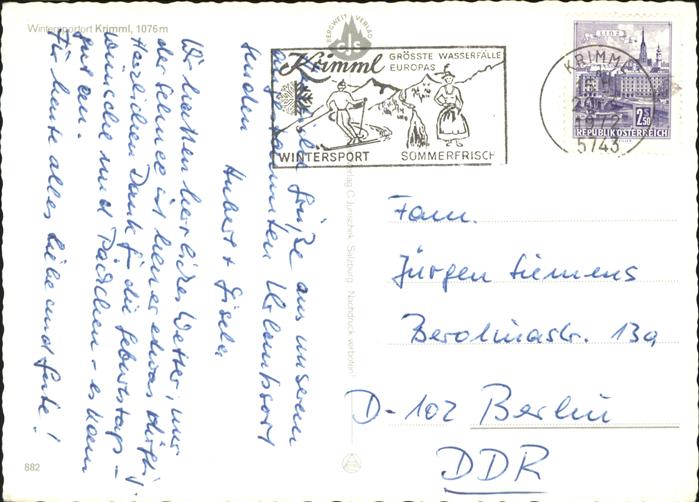 Wintersportort Krimml, 1076 m
BERGWELT VERLAG
CJS
Krimml
GRÖSSTE WASSERFÄLLE
EUROPAS
WINTERSPORT SOMMERFRISCH
KRIMML
1972
5743
LINZ
2.50
REPUBLIK ÖSTERREICH
Grüße aus unserem
Urlaubsort
senden
Hubert + Gisela
Wir hatten herrliches Wetter, nur
der Schnee ist heuer etwas dürftig.
Herzlichen Dank für die Geburtstags-
wünsche und Päckchen - es kam
gut an.
Für heute alles Liebe und Gute!
Verlag C. Jurischek, Salzburg. Nachdruck verboten!
Fam.
Jürgen Siemens
Berolinastr. 13a
D-102 Berlin
DDR
882